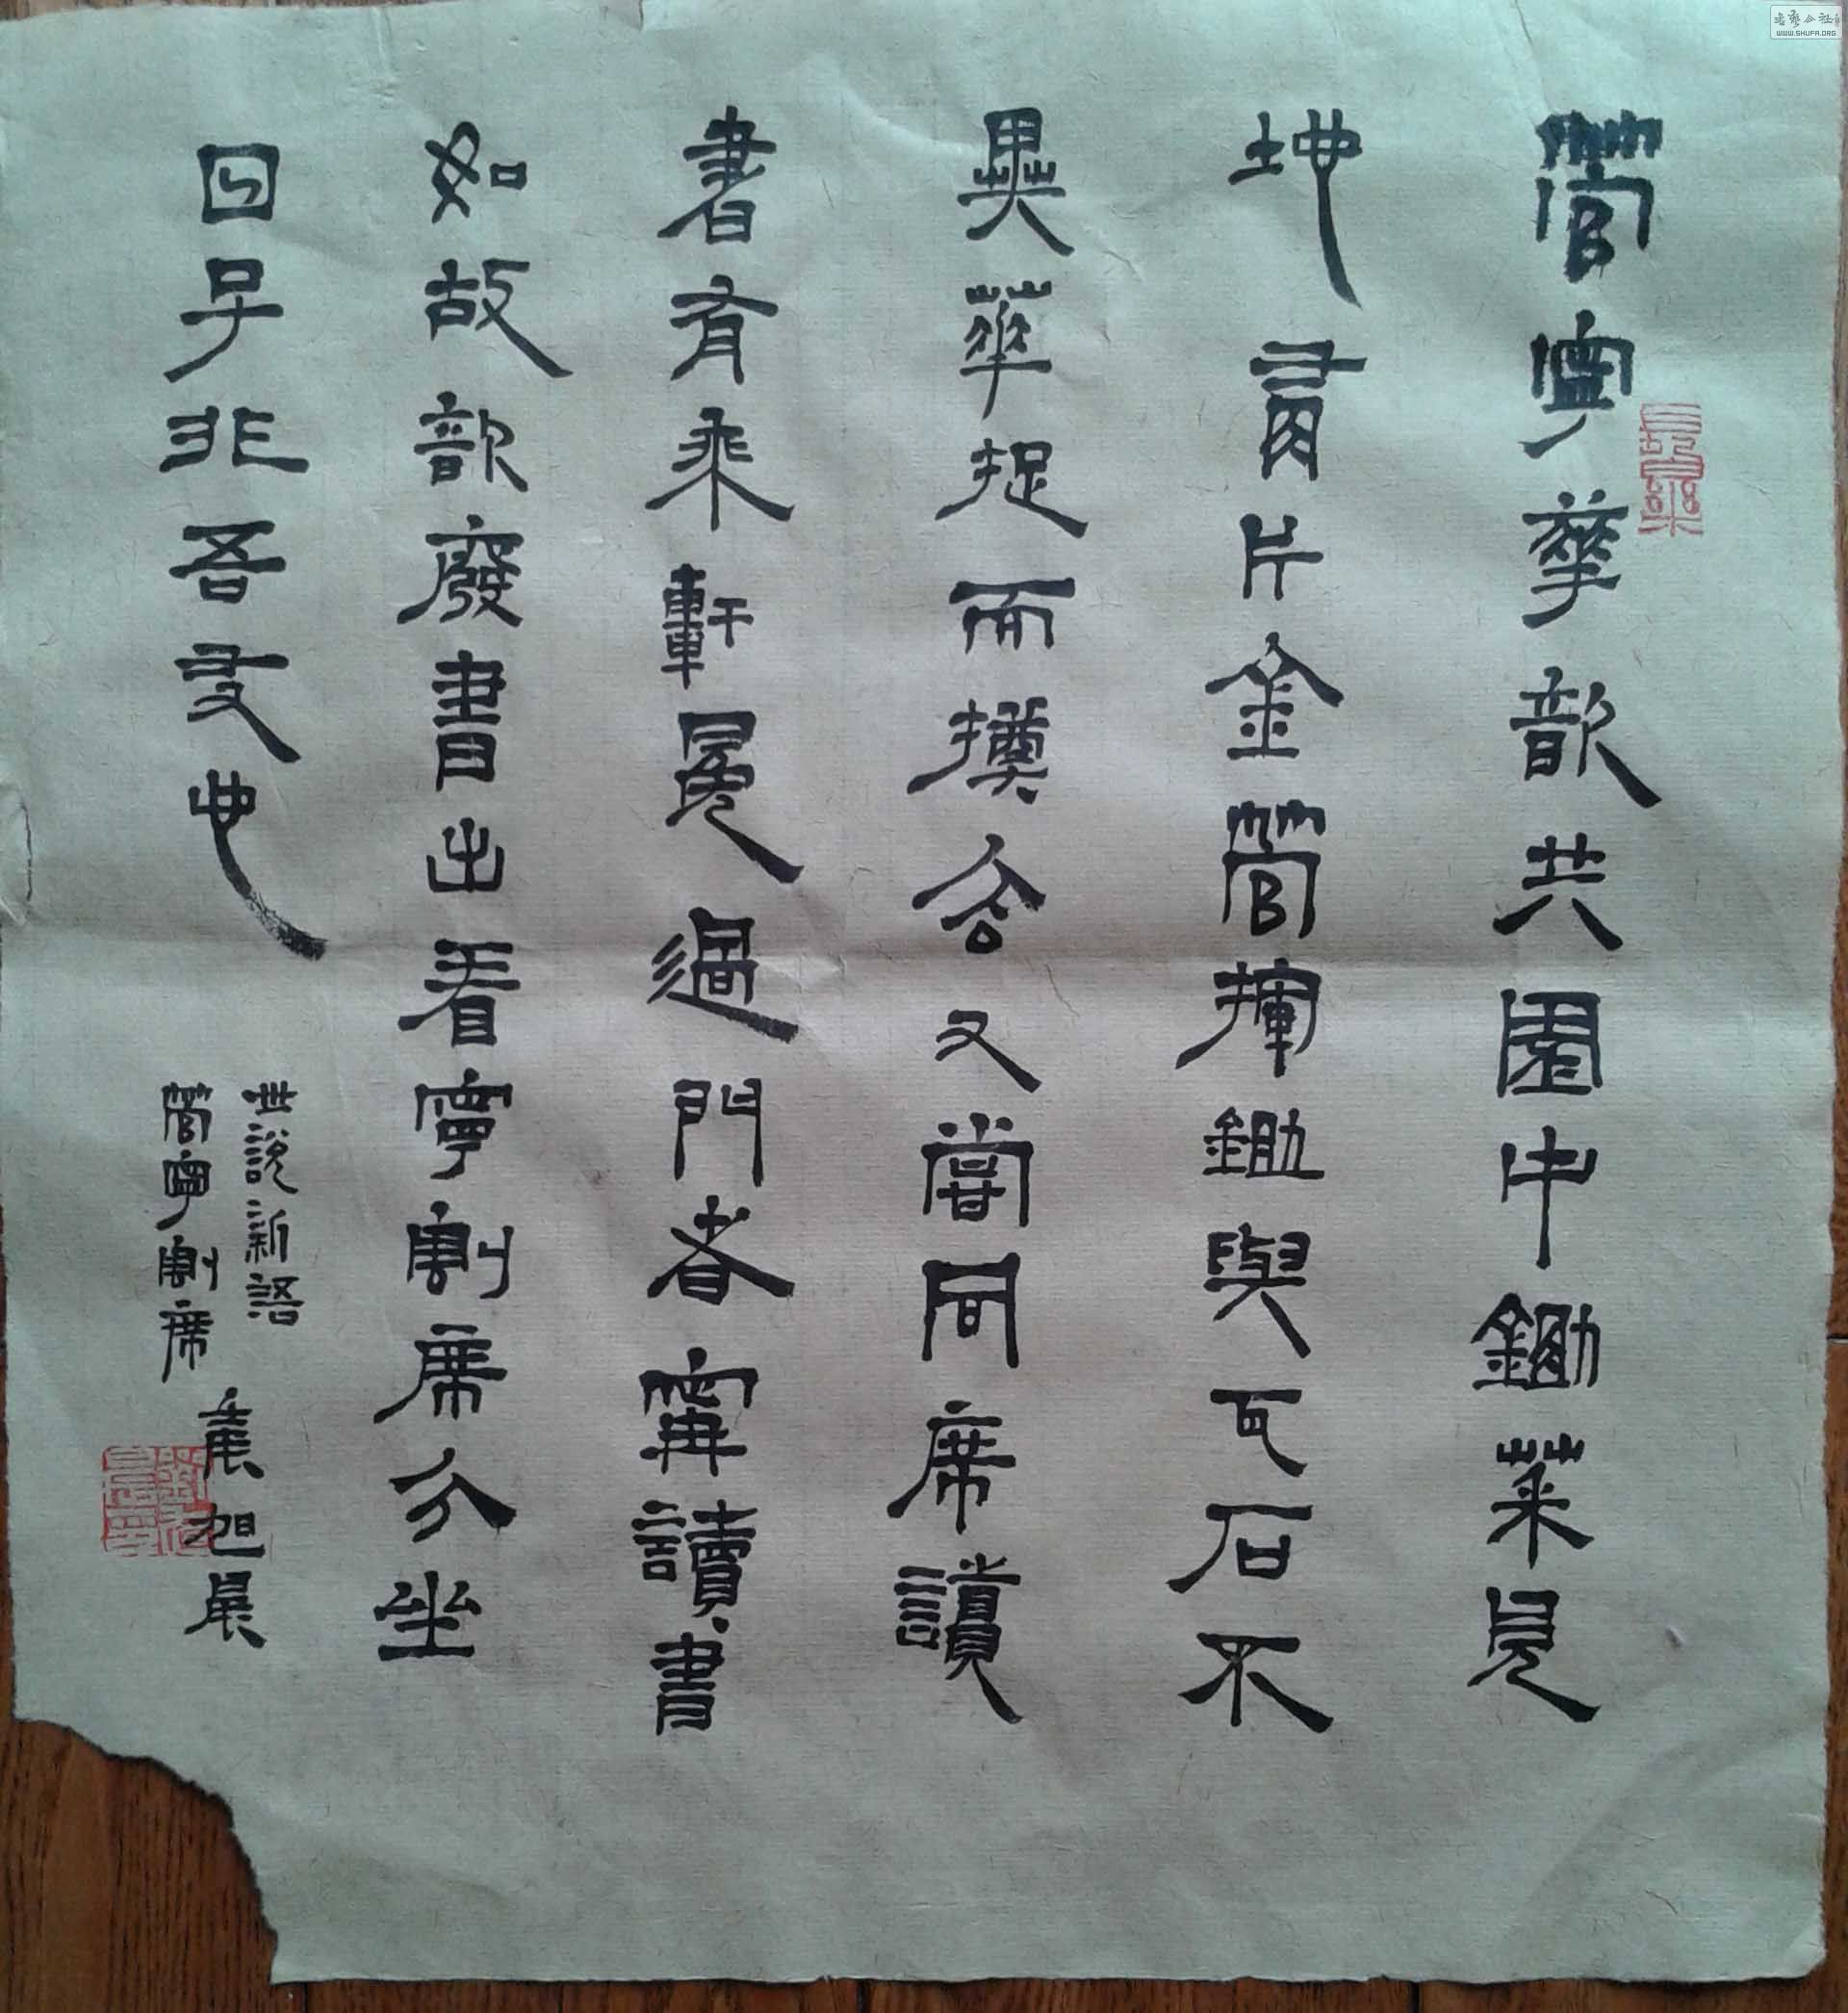 管寧華歆共園中鋤菜見
地有片金管揮鋤與瓦石不
異華捉而擲去又嘗同席讀
書有乘軒冕過門者寧讀書
如故歆廢書出看寧割席分坐
曰子非吾友也
世說新語
管寧割席
旭晨
书艺公社
WWW.SHUFA.ORG